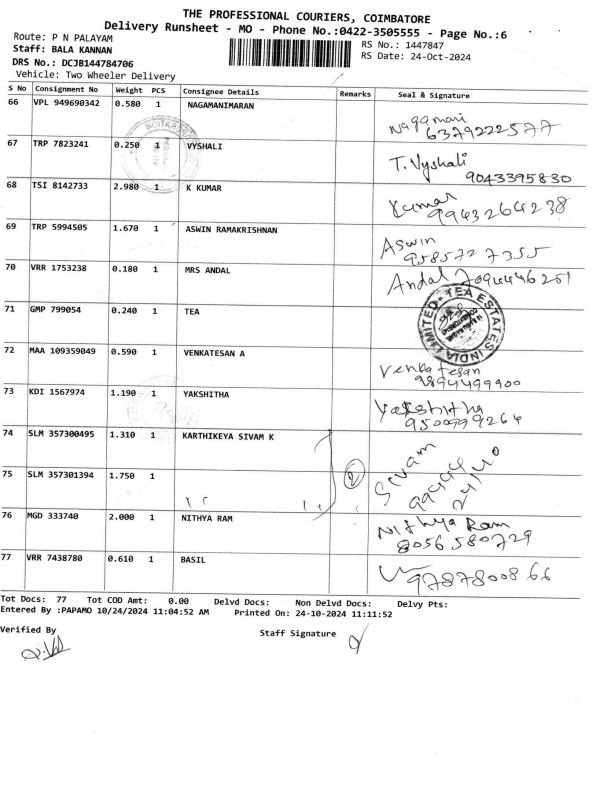 THE PROFESSIONAL COURIERS, COIMBATORE
Delivery Runsheet - MO - Phone No.:0422-3505555 - Page No.:6
Route: P N PALAYAM
RS No.: 1447847
Staff: BALA KANNAN
RS Date: 24-Oct-2024
DRS No.: DCJB144784706
Vehicle: Two Wheeler Delivery
S No Consignment No Weight PCS Consignee Details Remarks Seal & Signature
66 VPL 949690342 0.580 1 NAGAMANIMARAN
Nagamani
6379222577
67 TRP 7823241 0.250 1 VYSHALI
T. Vyshali
9043395830
68 TSI 8142733 2.980 1 K KUMAR
Kumar
9943264238
69 TRP 5994505 1.670 1 ASWIN RAMAKRISHNAN
Aswin
9585727355
70 VRR 1753238 0.180 1 MRS ANDAL
Andal 7094446251
71 GMP 799054 0.240 1 TEA
TEA ESTATES INDIA LIMITED
72 MAA 109359049 0.590 1 VENKATESAN A
Venkatesan
9894499900
73 KDI 1567974 1.190 1 YAKSHITHA
Yakshitha
9500799264
74 SLM 357300495 1.310 1 KARTHIKEYA SIVAM K
2
Sivam
75 SLM 357301394 1.750 1
76 MGD 333740 2.000 1 NITHYA RAM
Nithya Ram
8056580729
77 VRR 7438780 0.610 1 BASIL
9787800866
Tot Docs: 77 Tot COD Amt: 0.00 Delvd Docs: Non Delvd Docs: Delvy Pts:
Entered By :PAPAMO 10/24/2024 11:04:52 AM Printed On: 24-10-2024 11:11:52
Verified By
Staff Signature